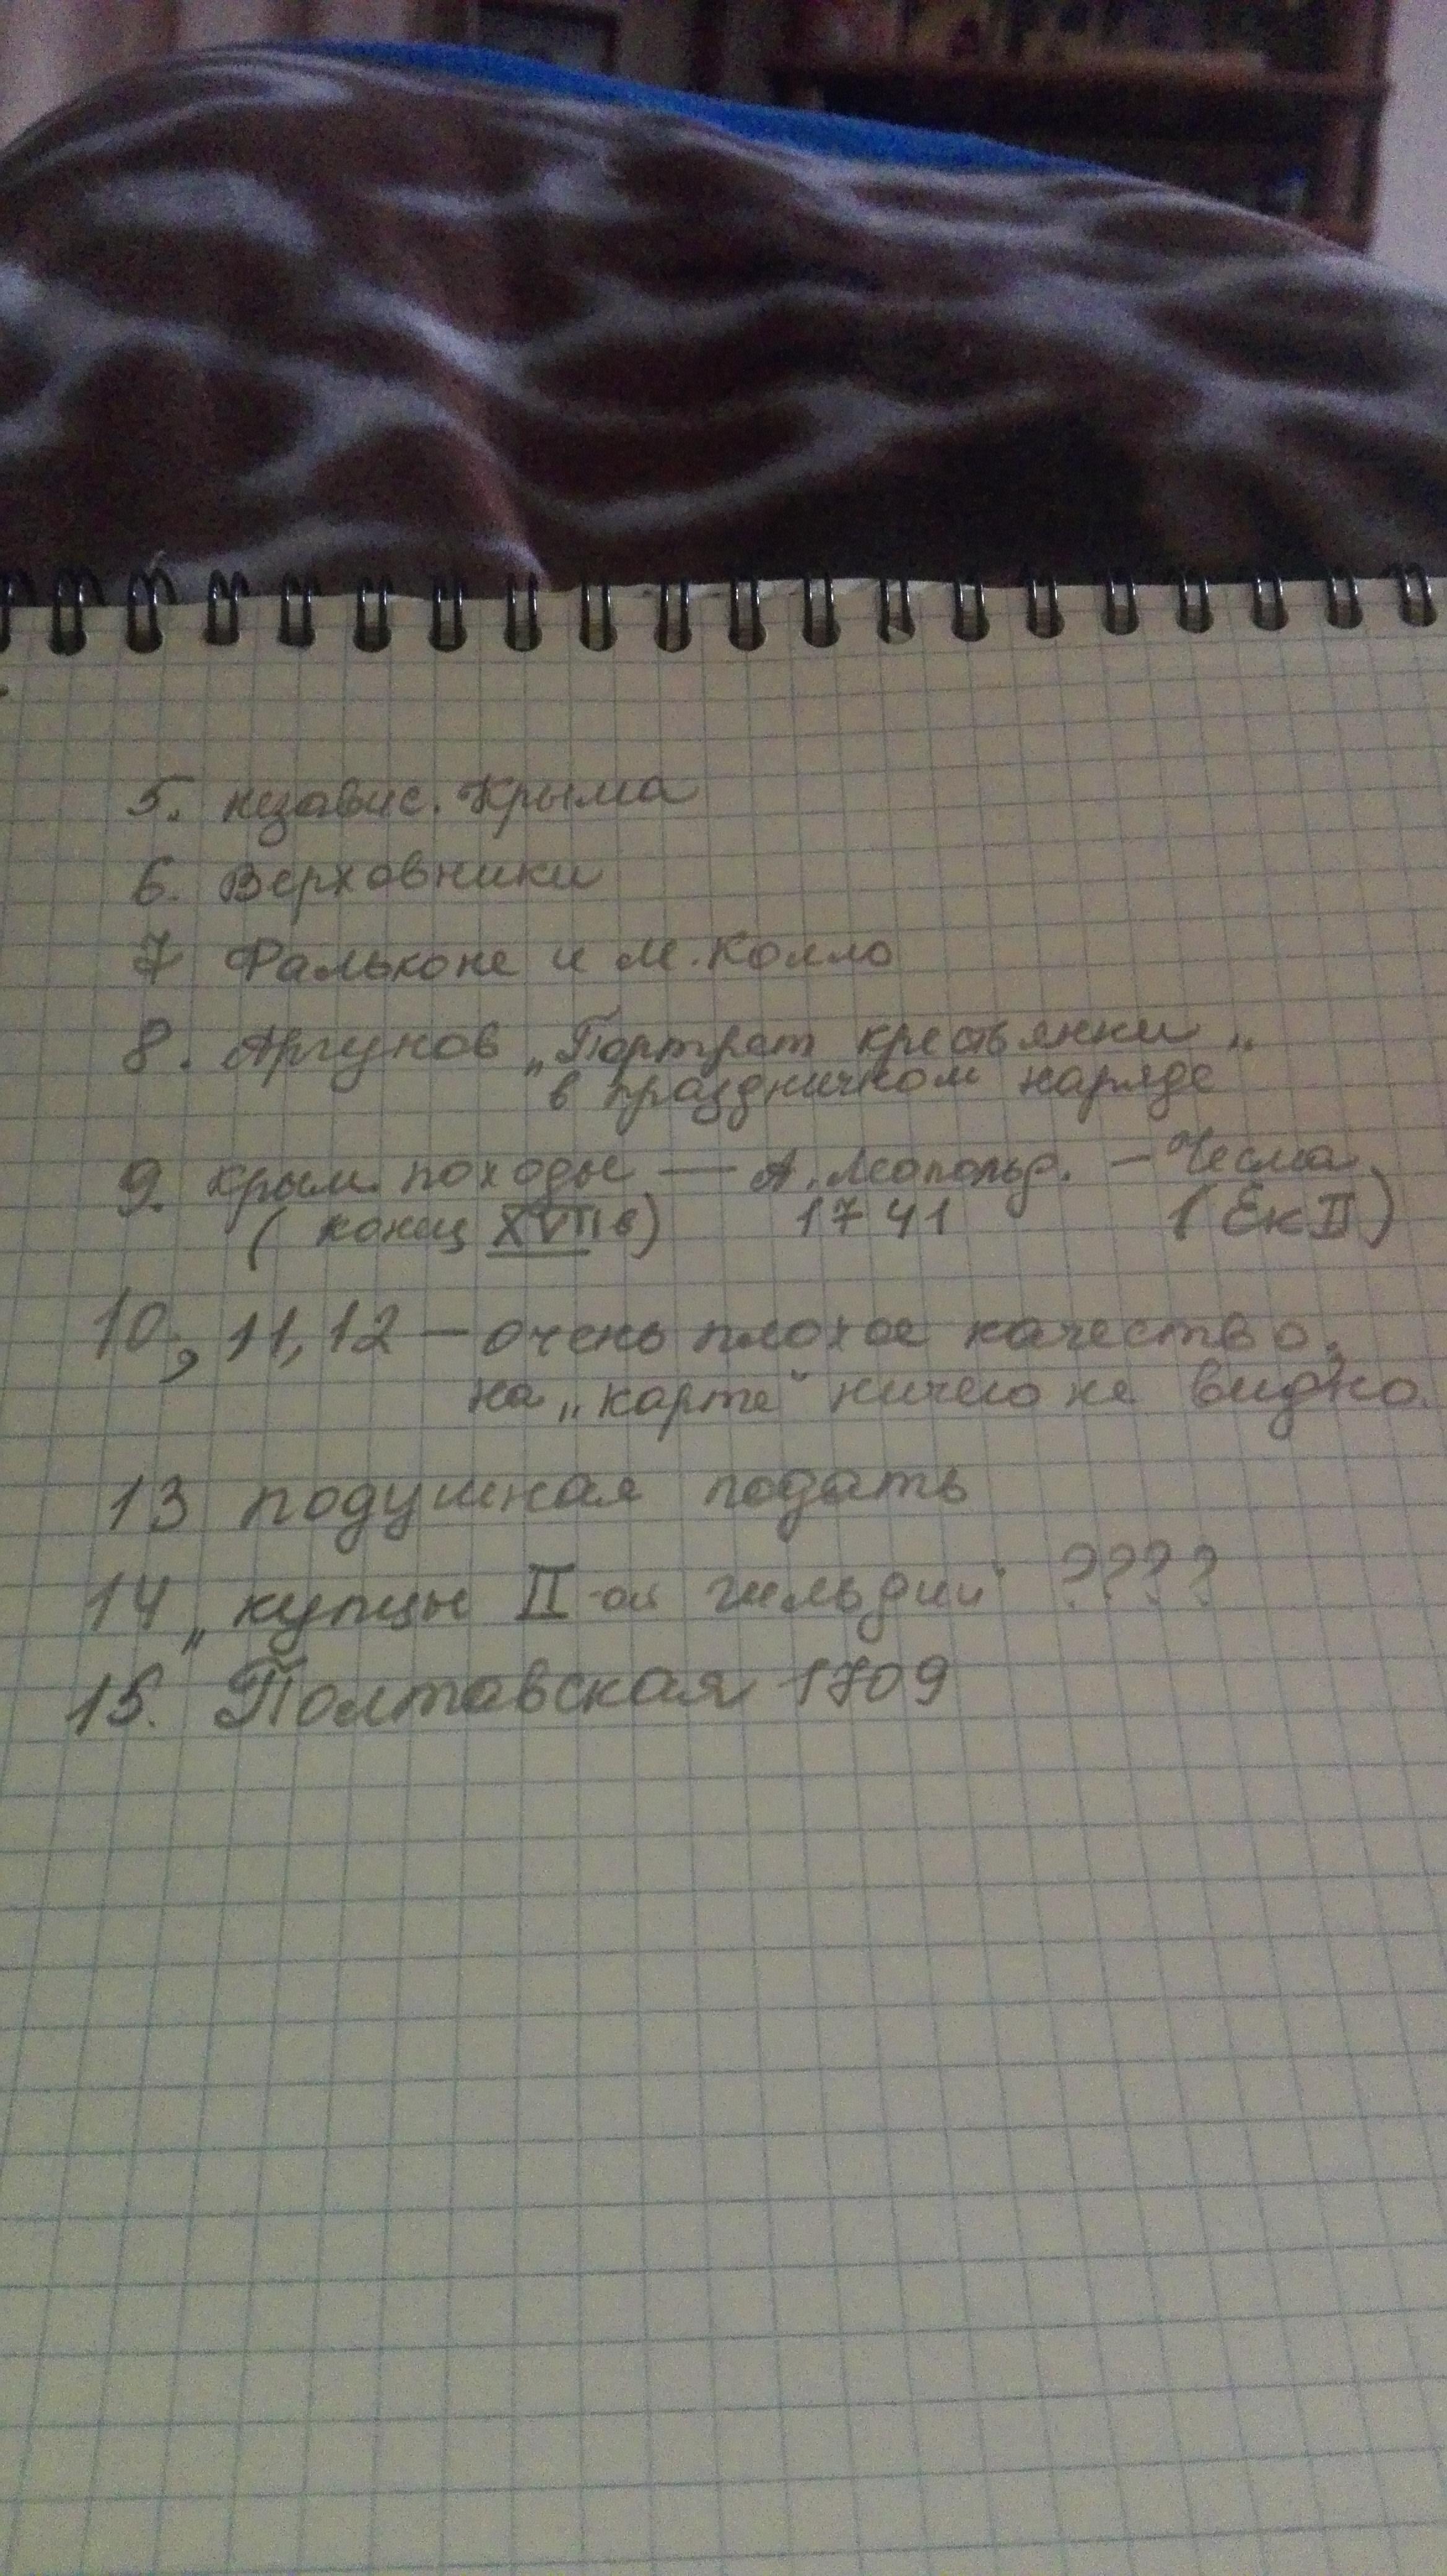 5. независ. Крыма
6. Верховники
7 Фальконе и М. Колло
8. Аргунов „Портрет крестьянки „
в праздничном наряде
9. крым. походы — А. Леопольд. – Чесма
( конец XVIIв) 1741 (Ек II)
10, 11, 12 – очень плохое качество,
на „карте" ничего не видно.
13 подушная подать
14 „купцы II-ой гильдии" ????
15. Полтавская 1709